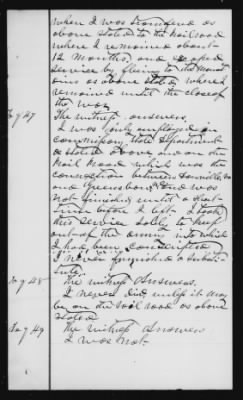 when I was transfered as
above stated to the Rail road
where I remained about
12 months, and escaped
service by fleeing to the Mount
ains as above stated where I
remained until the close of
the war
To q 47
The witness answers.
I was only employed in
commissary store department
as stated above and on the
Rail Road which was the
connection between Danville, Va
and Greensboro, and was
not finished until a short
time before I left. I took
this service solely to keep
out of the army into which
I had been conscripted
I never furnished a substi-
tute.
To q 48
The witness Answers.
I never did, unless it may
be on the rail road as above
stated
To q 49
The witness Answers
I was not